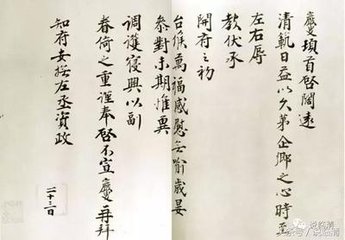 慶頓首啓闊遠
清軌日益以久第企鄉之心時至
左右辱
教伏承
開府之初
台候萬福感慰無喻歲晏
參對未期惟冀
調護寢興以副
眷倚之重謹奉啓不宣慶再拜
知府安撫左丞資政
二十三日